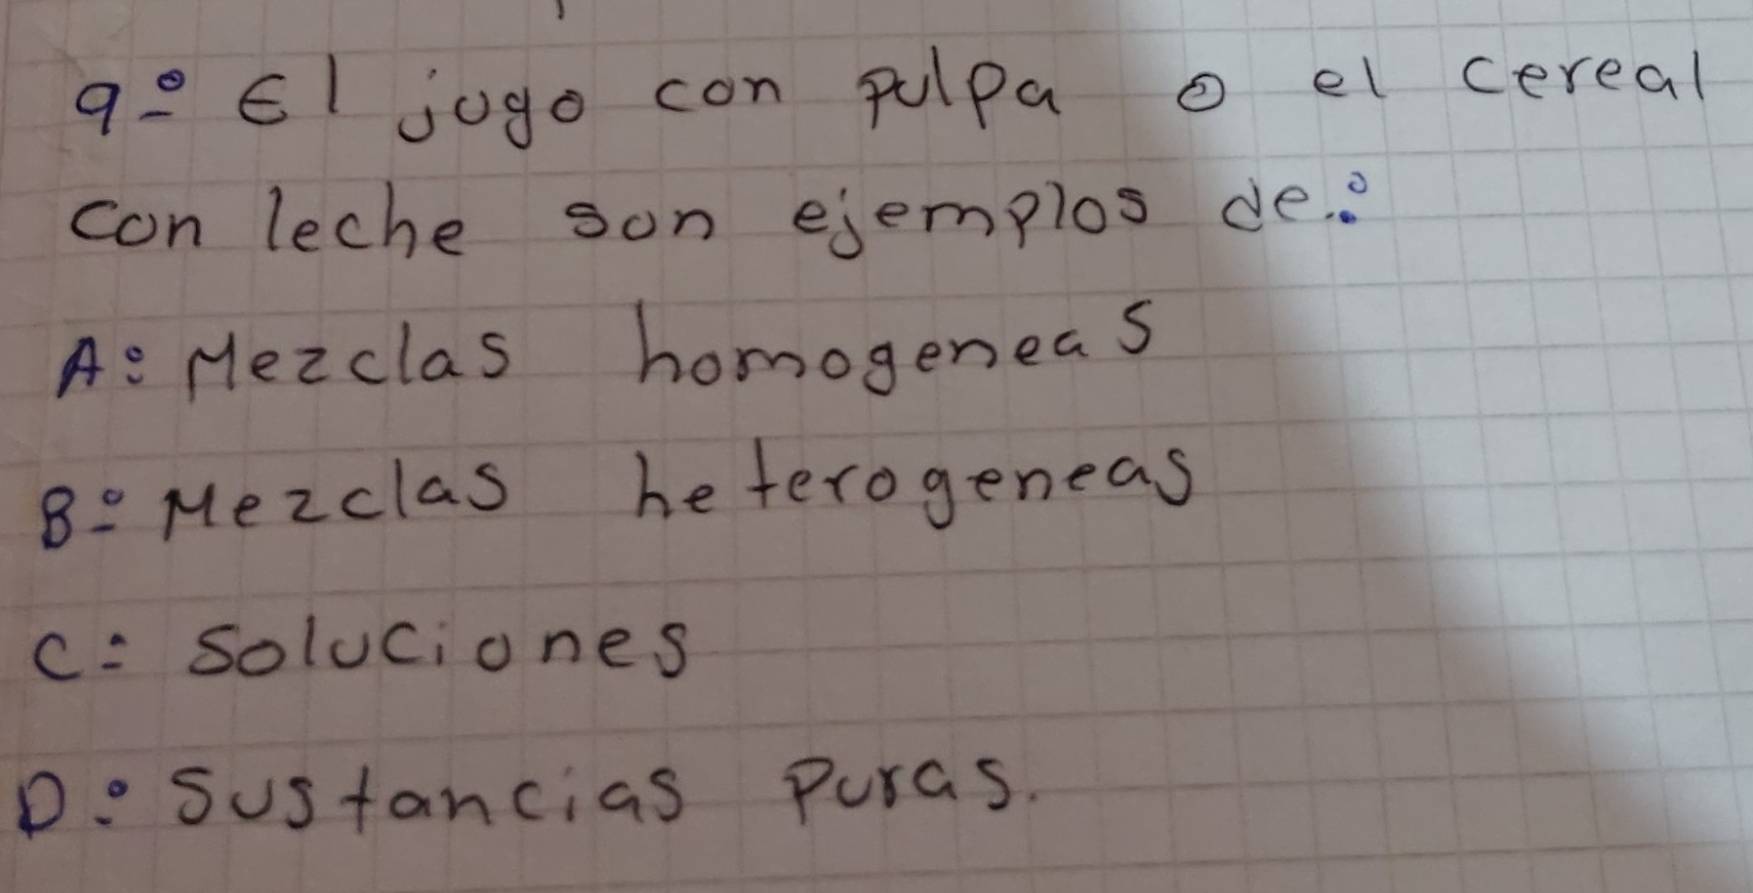 9-° El jugo con pulpa o el cereal
con leche son ejemplos de:
A: Mezclas homogeneas
B: Mezclas heterogeneas
C: Soluciones
D: Sustancias puras.